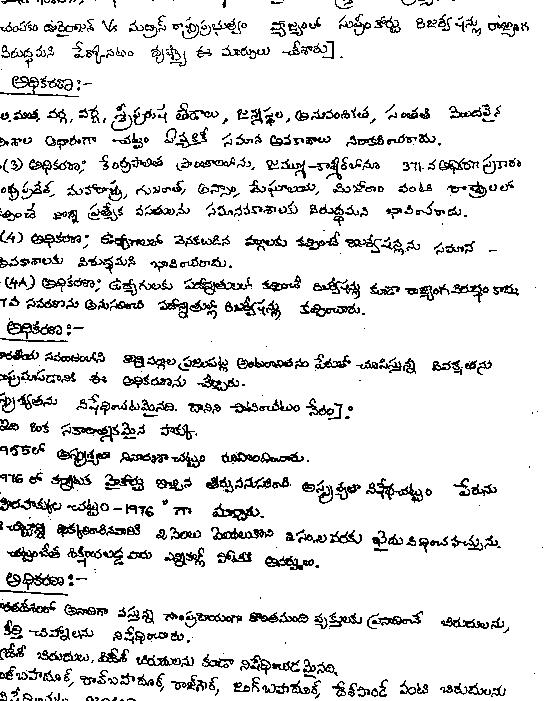 చంపకం దొరైరాజన్ Vs మద్రాస్ రాష్ట్రప్రభుత్వం వ్యాజ్యంలో సుప్రీంకోర్టు రిజర్వేషన్లు రాజ్యాంగ
విరుద్ధమని పేర్కొనటం దృష్ట్యా ఈ మార్పులు చేశారు].
అధికరణ:-
మత, వర్గ, వర్ణ, స్త్రీపురుష తేడాలు, జన్మస్థల, అనువంశికత, సంతతి మొదలైన
ఆధారంగా చట్టం ఏ వ్యక్తికీ సమాన అవకాశాలు నిరాకరించరాదు.
(3) అధికరణ; కేంద్రపాలిత ప్రాంతాలలోను, జమ్మూ-కాశ్మీర్‌లోనూ 371 వ అధికరణ ప్రకారం
మహారాష్ట్ర, గుజరాత్, అస్సాం, మేఘాలయ, మిజోరాం వంటి రాష్ట్రాలలో
కొన్ని ప్రత్యేక వసతులను సమానవకాశాలకు విరుద్ధమని భావించరాదు.
(4) అధికరణ; ఉద్యోగాలలో వెనకబడిన వర్గాలకు కల్పించే రిజర్వేషన్లను సమాన -
అవకాశాలకు విరుద్ధమని భావించరాదు.
(4A) అధికరణ; ఉద్యోగులకు పదోన్నతులలో కల్పించే రిజర్వేషన్లు కూడా రాజ్యాంగ విరుద్ధం కాదు.
సవరణను అనుసరించి పదోన్నతుల్లో రిజర్వేషన్లు కల్పించారు.
అధికరణ:-
భారతీయ సమాజంలోని కొన్ని వర్గాల ప్రజలపట్ల అంటరానితనం పేరుతో చూపిస్తున్న వివక్షతను
ఈ అధికరణను చేర్చారు.
అస్పృశ్యతను నిషేధించటమైనది. దానిని పాటించటం నేరం]:
ఇది ఒక సకారాత్మకమైన హక్కు.
1955లో అస్పృశ్యతా నివారణా చట్టం రూపొందించారు.
1976 లో కర్ణాటక హైకోర్టు ఇచ్చిన తీర్పుననుసరించి అస్పృశ్యతా నిషేధ చట్టం పేరును
పౌరహక్కుల చట్టం-1976" గా మార్చారు.
చట్టాన్ని ఉల్లంఘించినవారికి 6 నెలలు మొదలుకొని 2 సం.ల వరకు ఖైదు విధించవచ్చును.
చట్టంచేత శిక్షింపబడ్డ వారు ఎన్నికల్లో పోటీకి అనర్హులు.
అధికరణ:-
భారతదేశంలో అనాదిగా వస్తున్న సాంప్రదాయంగా కొంతమంది వ్యక్తులకు ప్రసాదించే బిరుదులను,
కీర్తి చిహ్నాలను నిషేధించారు.
బిరుదులు, విదేశీ బిరుదులను కూడా నిషేధించడమైనది.
రావ్‌బహదూర్, రాజ్‌గౌర్, జంగ్ బహదూర్, దేశ్‌పాండే వంటి బిరుదులను